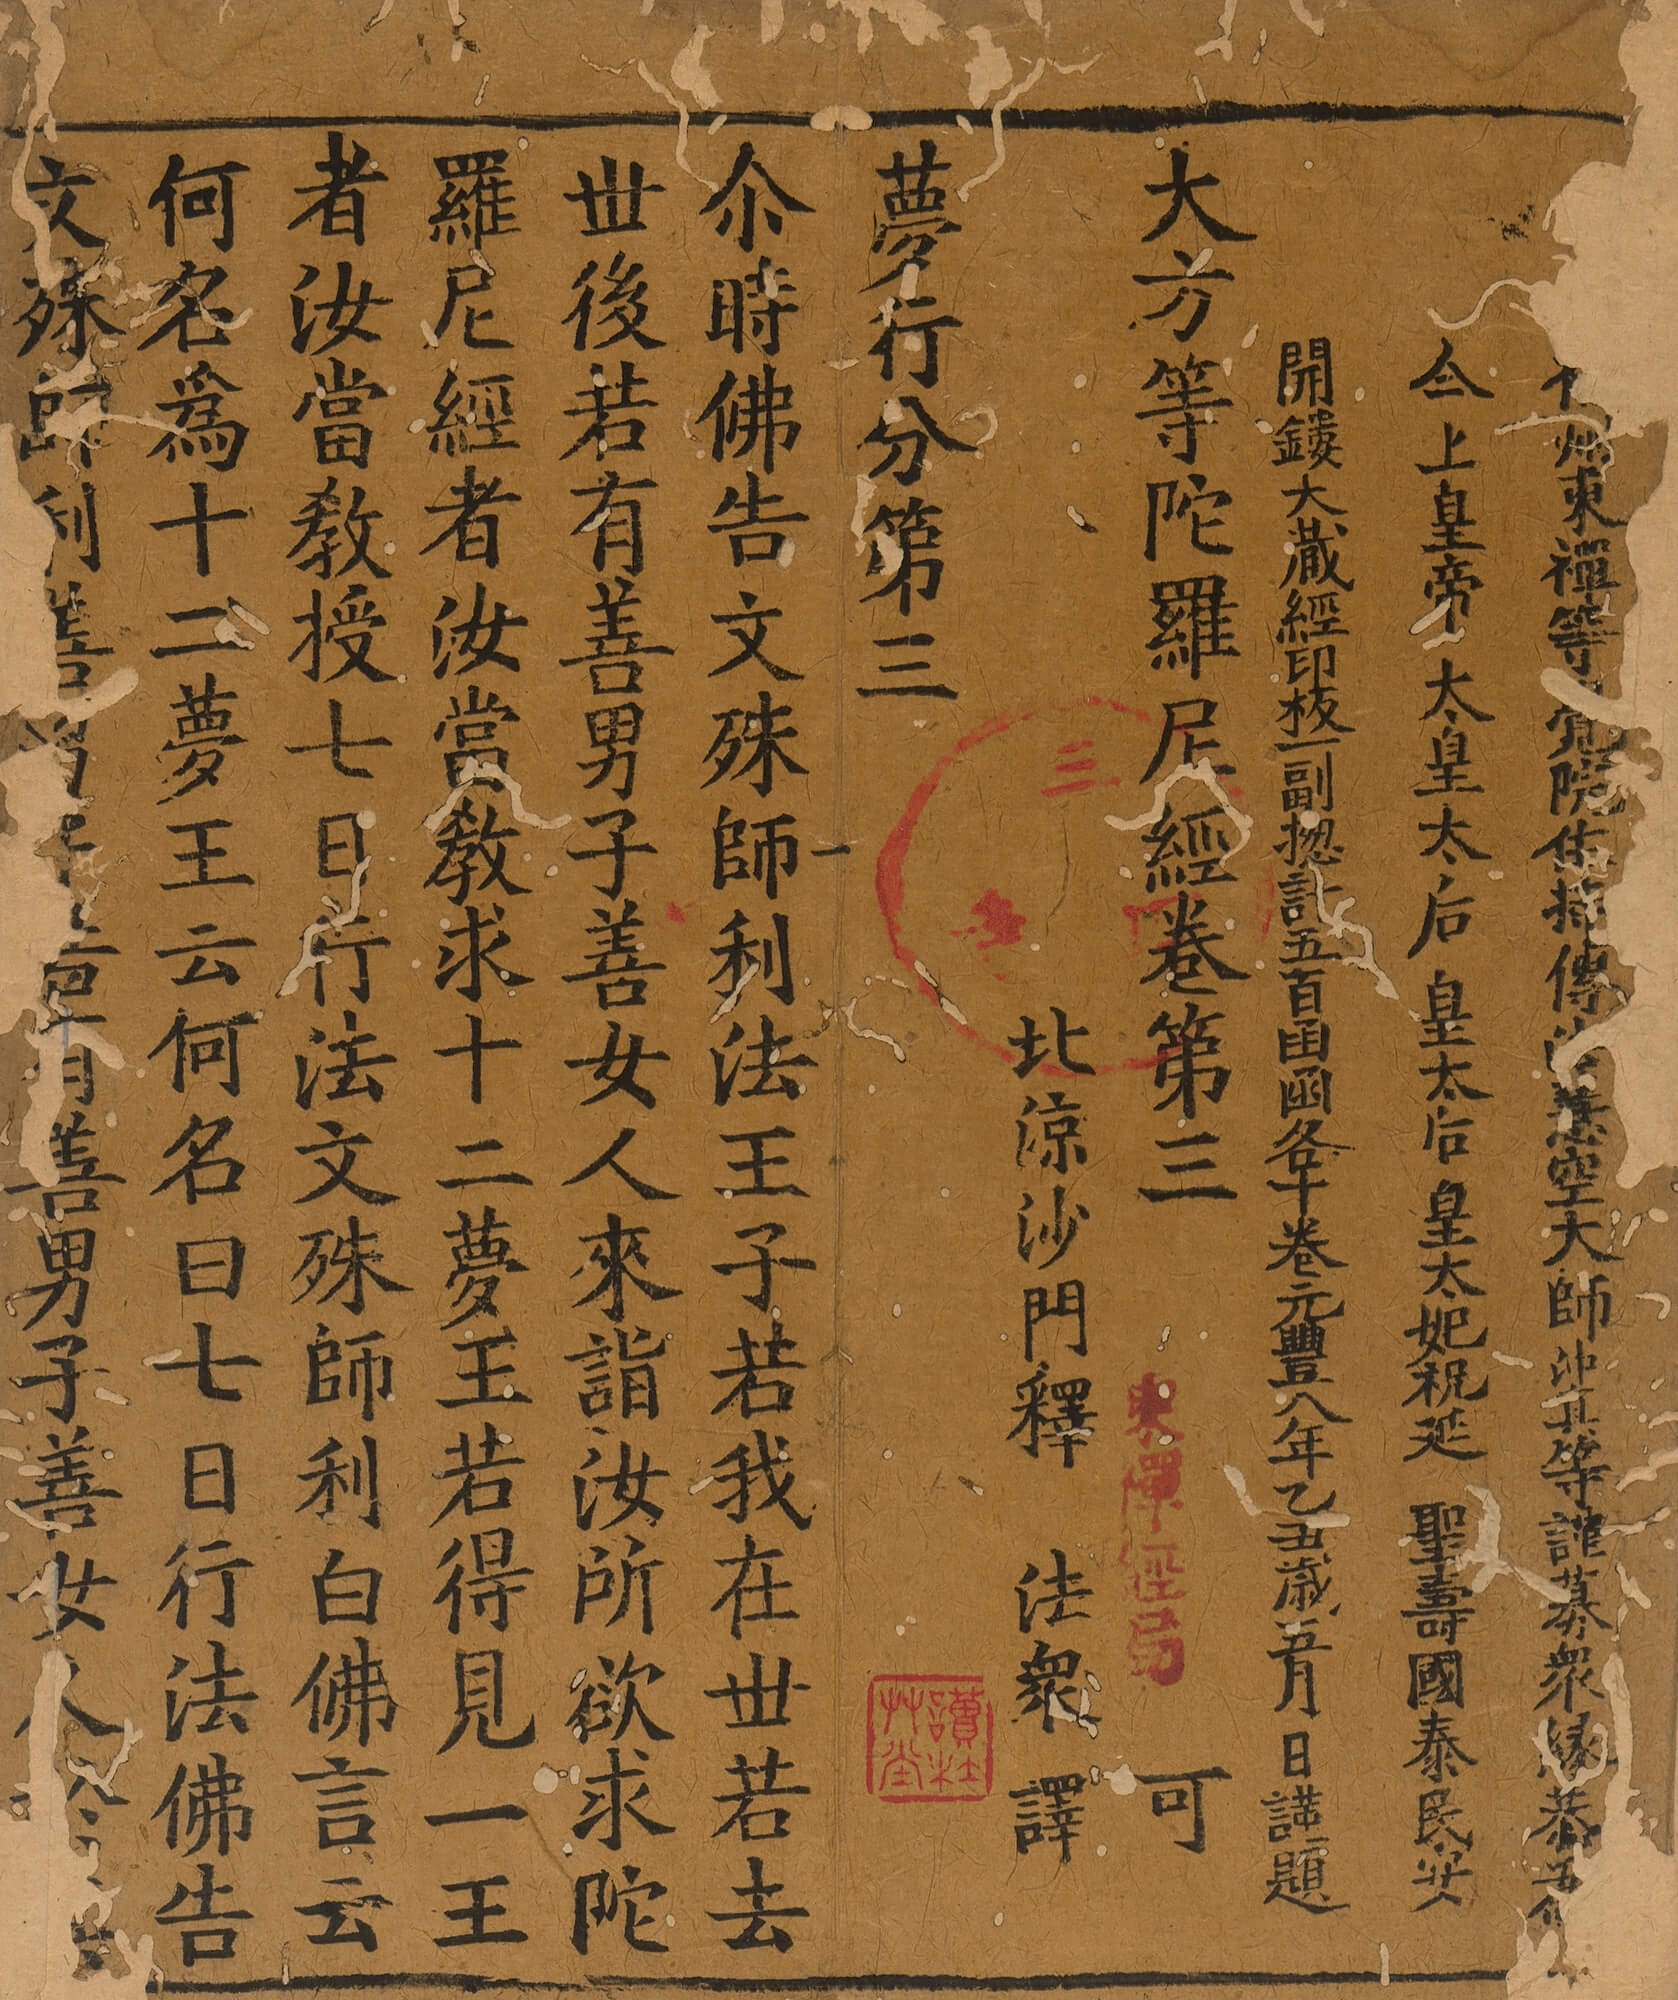 州東禪等覺院住持傳法慧空大師沖真等謹募衆緣恭爲
今上皇帝 太皇太后 皇太后 皇太妃祝延 聖壽國泰民安
開鏤大藏經印板一副揔計五百函函各十卷元豐八年乙丑歲五月 日謹題
大方等陀羅尼經卷第三 可
東禪經局
三
北涼沙門釋 法衆 譯
讀杜艸堂
夢行分第三
尒時佛告文殊師利法王子若我在世若去
世後若有善男子善女人來詣汝所欲求陀
羅尼經者汝當教求十二夢王若得見一王
者汝當教授七日行法文殊師利白佛言云
何名爲十二夢王云何名曰七日行法佛告
文殊師利善男子善女人